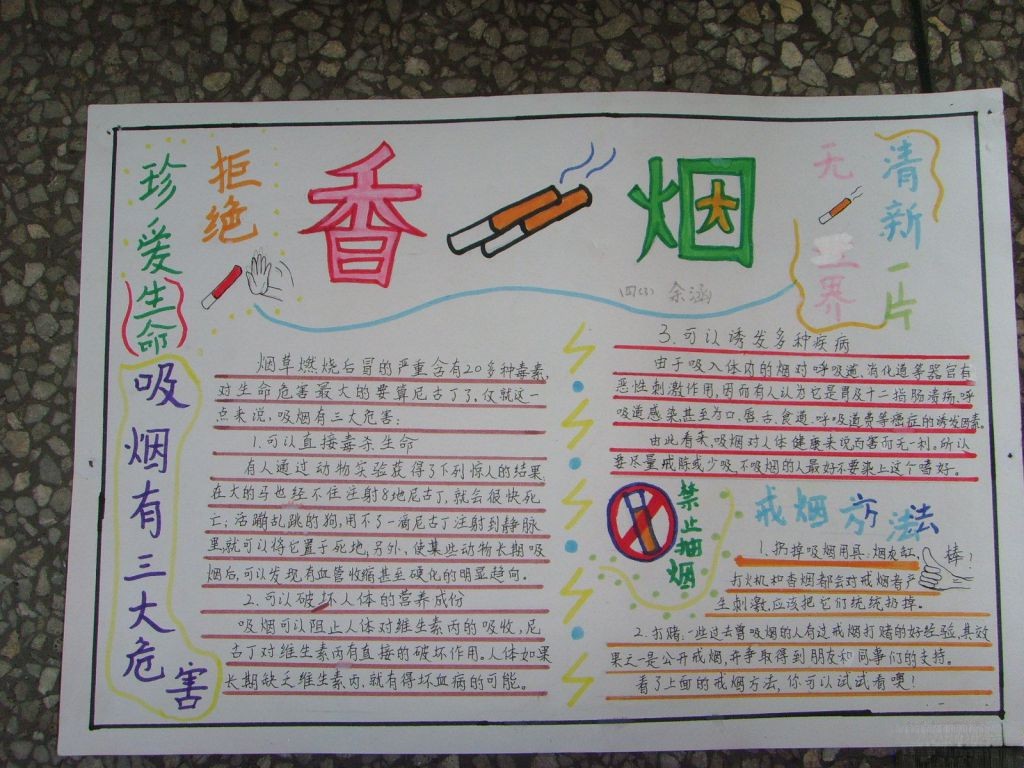 珍爱生命
拒绝
香烟
无
界
清新一片
四(3) 余涵
吸烟有三大危害
烟草燃烧后冒的严重含有20多种毒素,
对生命危害最大的要算尼古丁了,仅就这一
点来说,吸烟有三大危害:
1.可以直接毒杀生命
有人通过动物实验获得了下列惊人的结果,
在大的马也经不住注射8地尼古丁,就会很快死
亡;活蹦乱跳的狗,用不了一滴尼古丁注射到静脉
里,就可以将它置于死地,另外,使某些动物长期吸
烟后,可以发现有血管收缩甚至硬化的明显趋向。
2.可以破坏人体的营养成份
吸烟可以阻止人体对维生素丙的吸收,尼
古丁对维生素丙有直接的破坏作用。人体如果
长期缺乏维生素丙、就有得坏血病的可能。
3.可以诱发多种疾病
由于吸入体内的烟对呼吸道、消化道等器官有
恶性刺激作用,因而有人认为它是胃及十二指肠溃疡、呼
吸道感染甚至为口、唇、舌、食道、呼吸道费等癌症的诱发因素。
由此看来,吸烟对人体健康来说百害而无一利。所以
要尽量戒除或少吸,不吸烟的人最好不要染上这个嗜好。
禁止抽烟
戒烟方法
1.扔掉吸烟用具:烟灰缸、
棒!
打火机和香烟都会对戒烟者产
生刺激,应该把它们统统扔掉。
2.打赌.一些过去曾吸烟的人有过戒烟打赌的好经验,其效
果之一是公开戒烟,并争取得到朋友和同事们的支持。
看了上面的戒烟方法,你可以试试看噢!